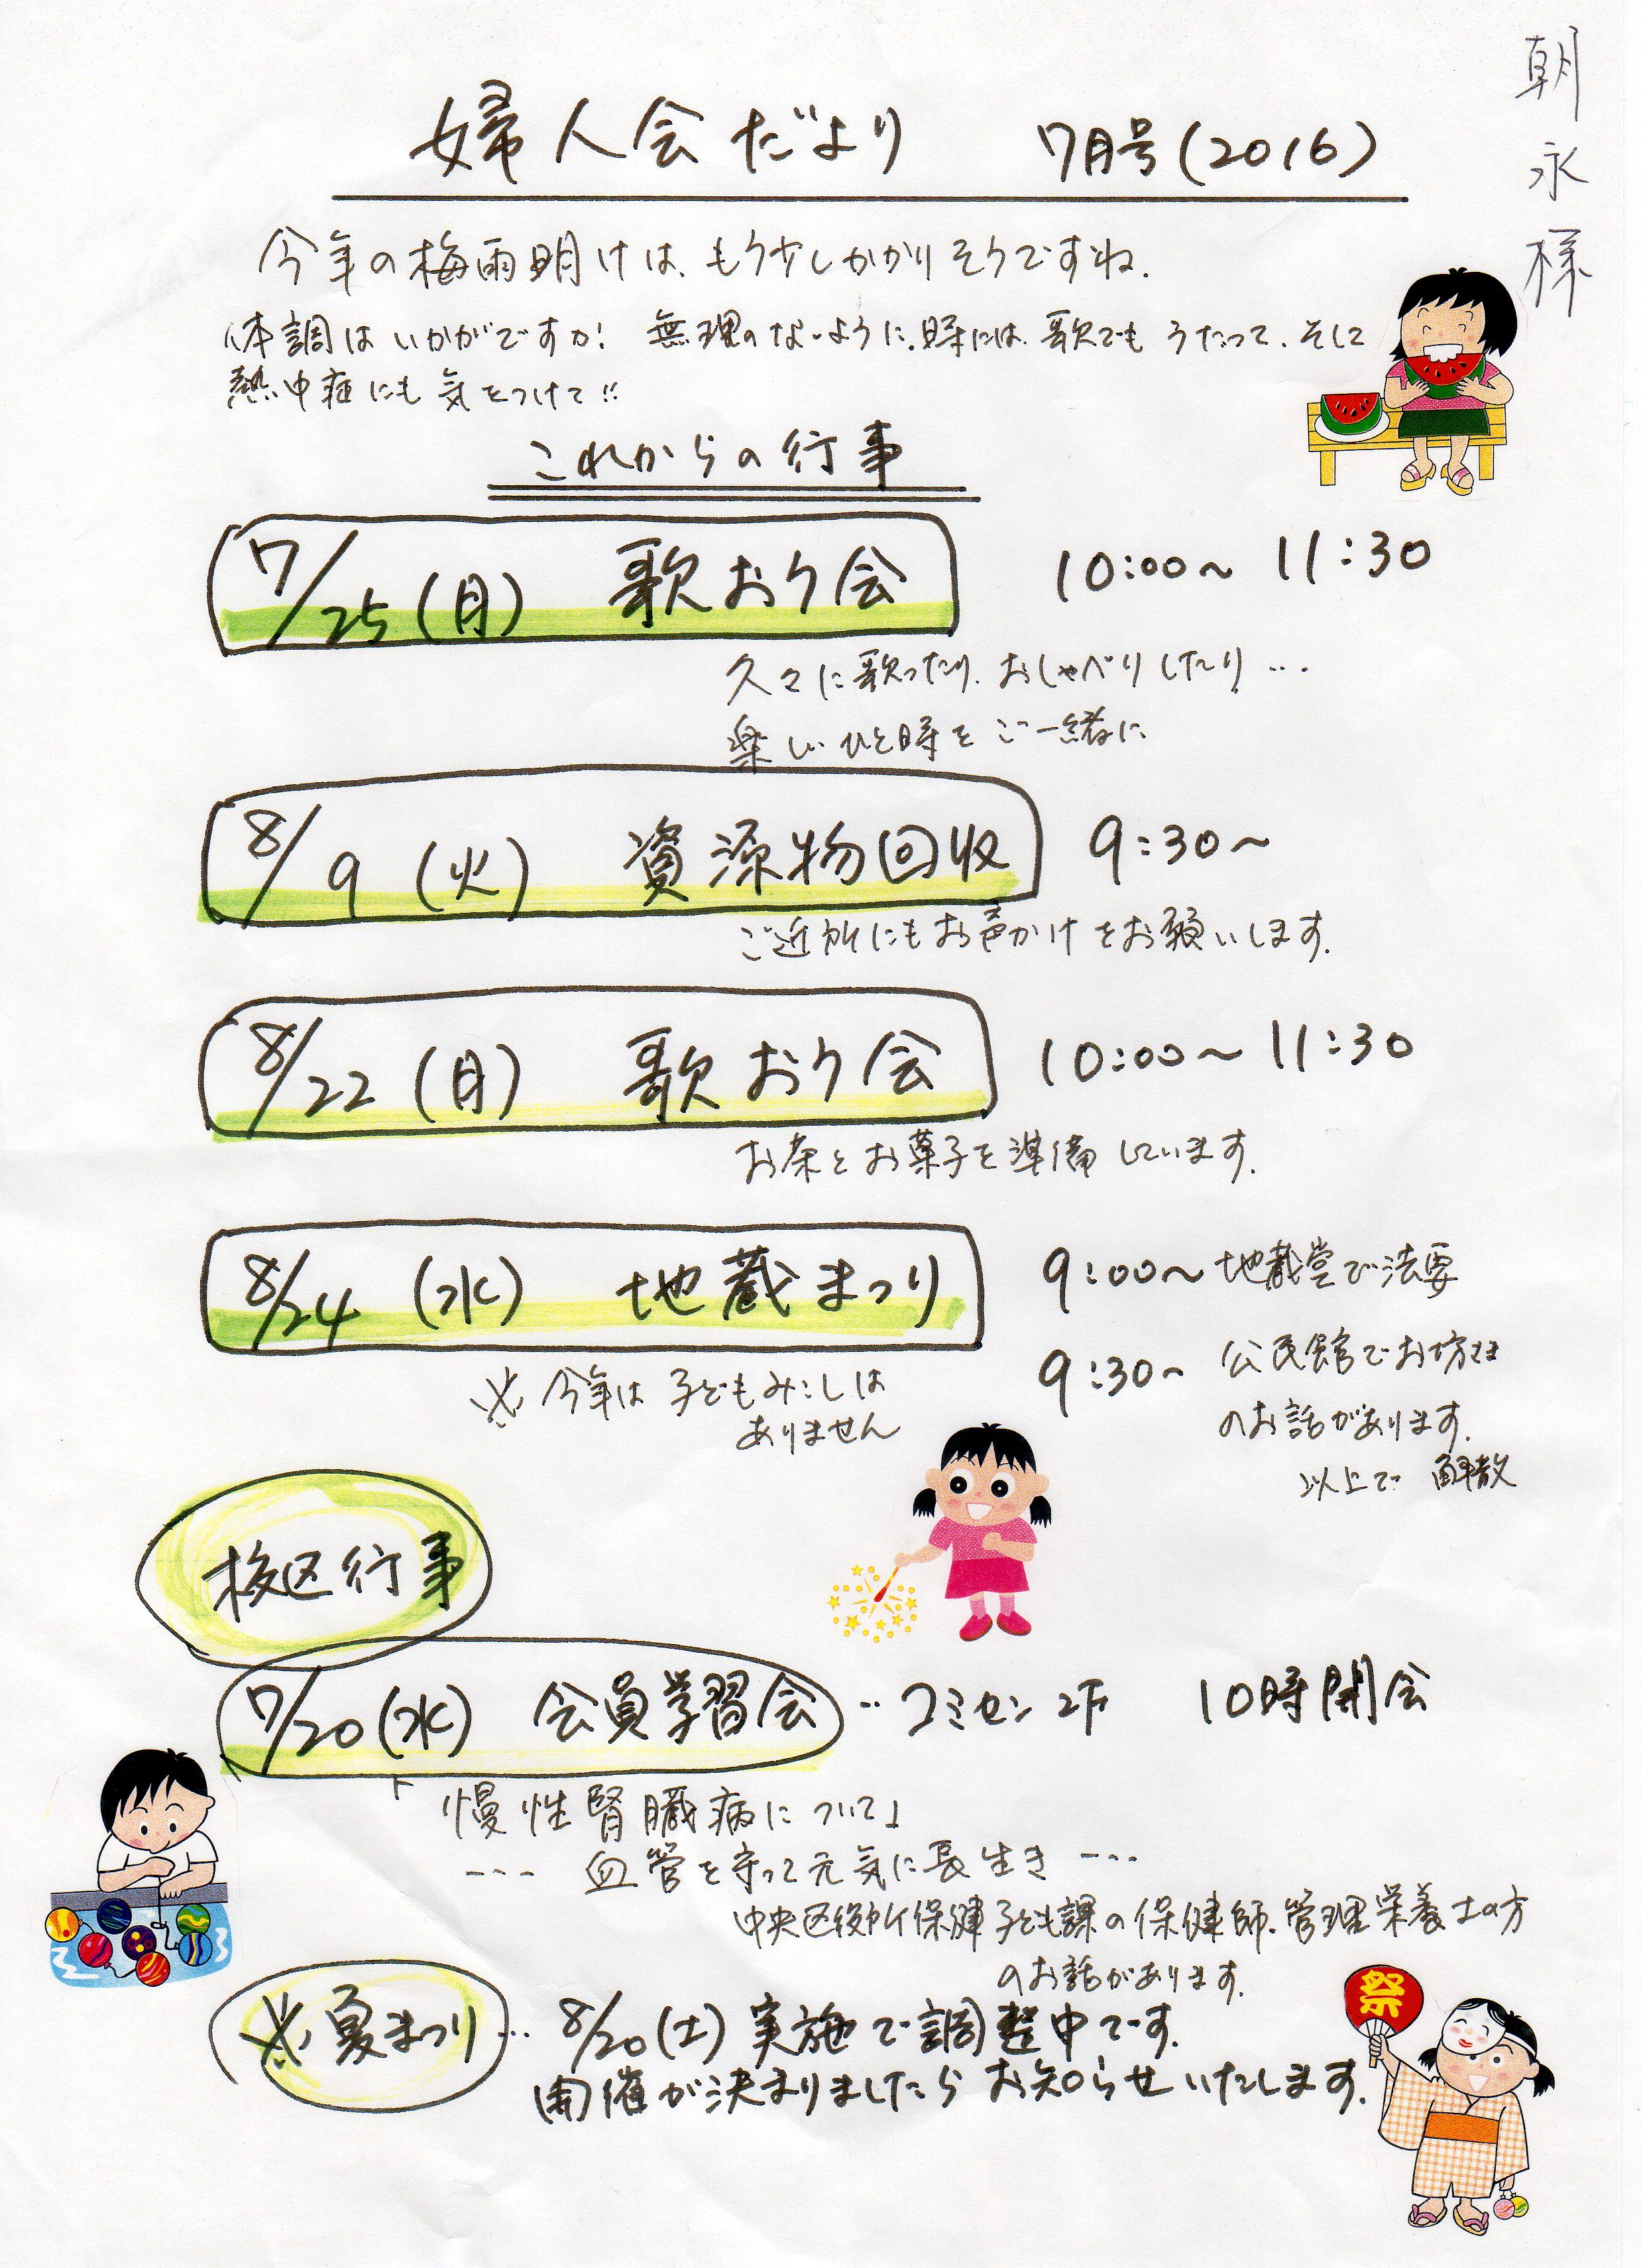 朝永様
婦人会だより 7月号(2016)
今年の梅雨明けは、もう少しかかりそうですね.
体調はいかがですか! 無理のないように.時には、歌でもうたって、そして
熱中症にも気をつけて!!
これからの行事
7/25(月) 歌おう会 10:00〜11:30
久々に歌ったり、おしゃべりしたり…
楽しいひと時をご一緒に
8/9(火) 資源物回収 9:30〜
ご近所にもお声かけをお願いします.
8/22(月) 歌おう会 10:00〜11:30
お茶とお菓子を準備しています.
8/24(水) 地蔵まつり 9:00〜地蔵堂で法要
9:30〜 公民館でお坊さま
のお話があります.
以上で 解散
※今年は子どもみこしは
ありません
校区行事
7/20(水) 会員学習会‥コミセン2F 10時開会
「慢性腎臓病について」
--- 血管を守って元気に長生き ---
中央区役所保健子ども課の保健師、管理栄養士の方
のお話があります.
※夏まつり… 8/20(土)実施で調整中です.
開催が決まりましたらお知らせいたします.
祭